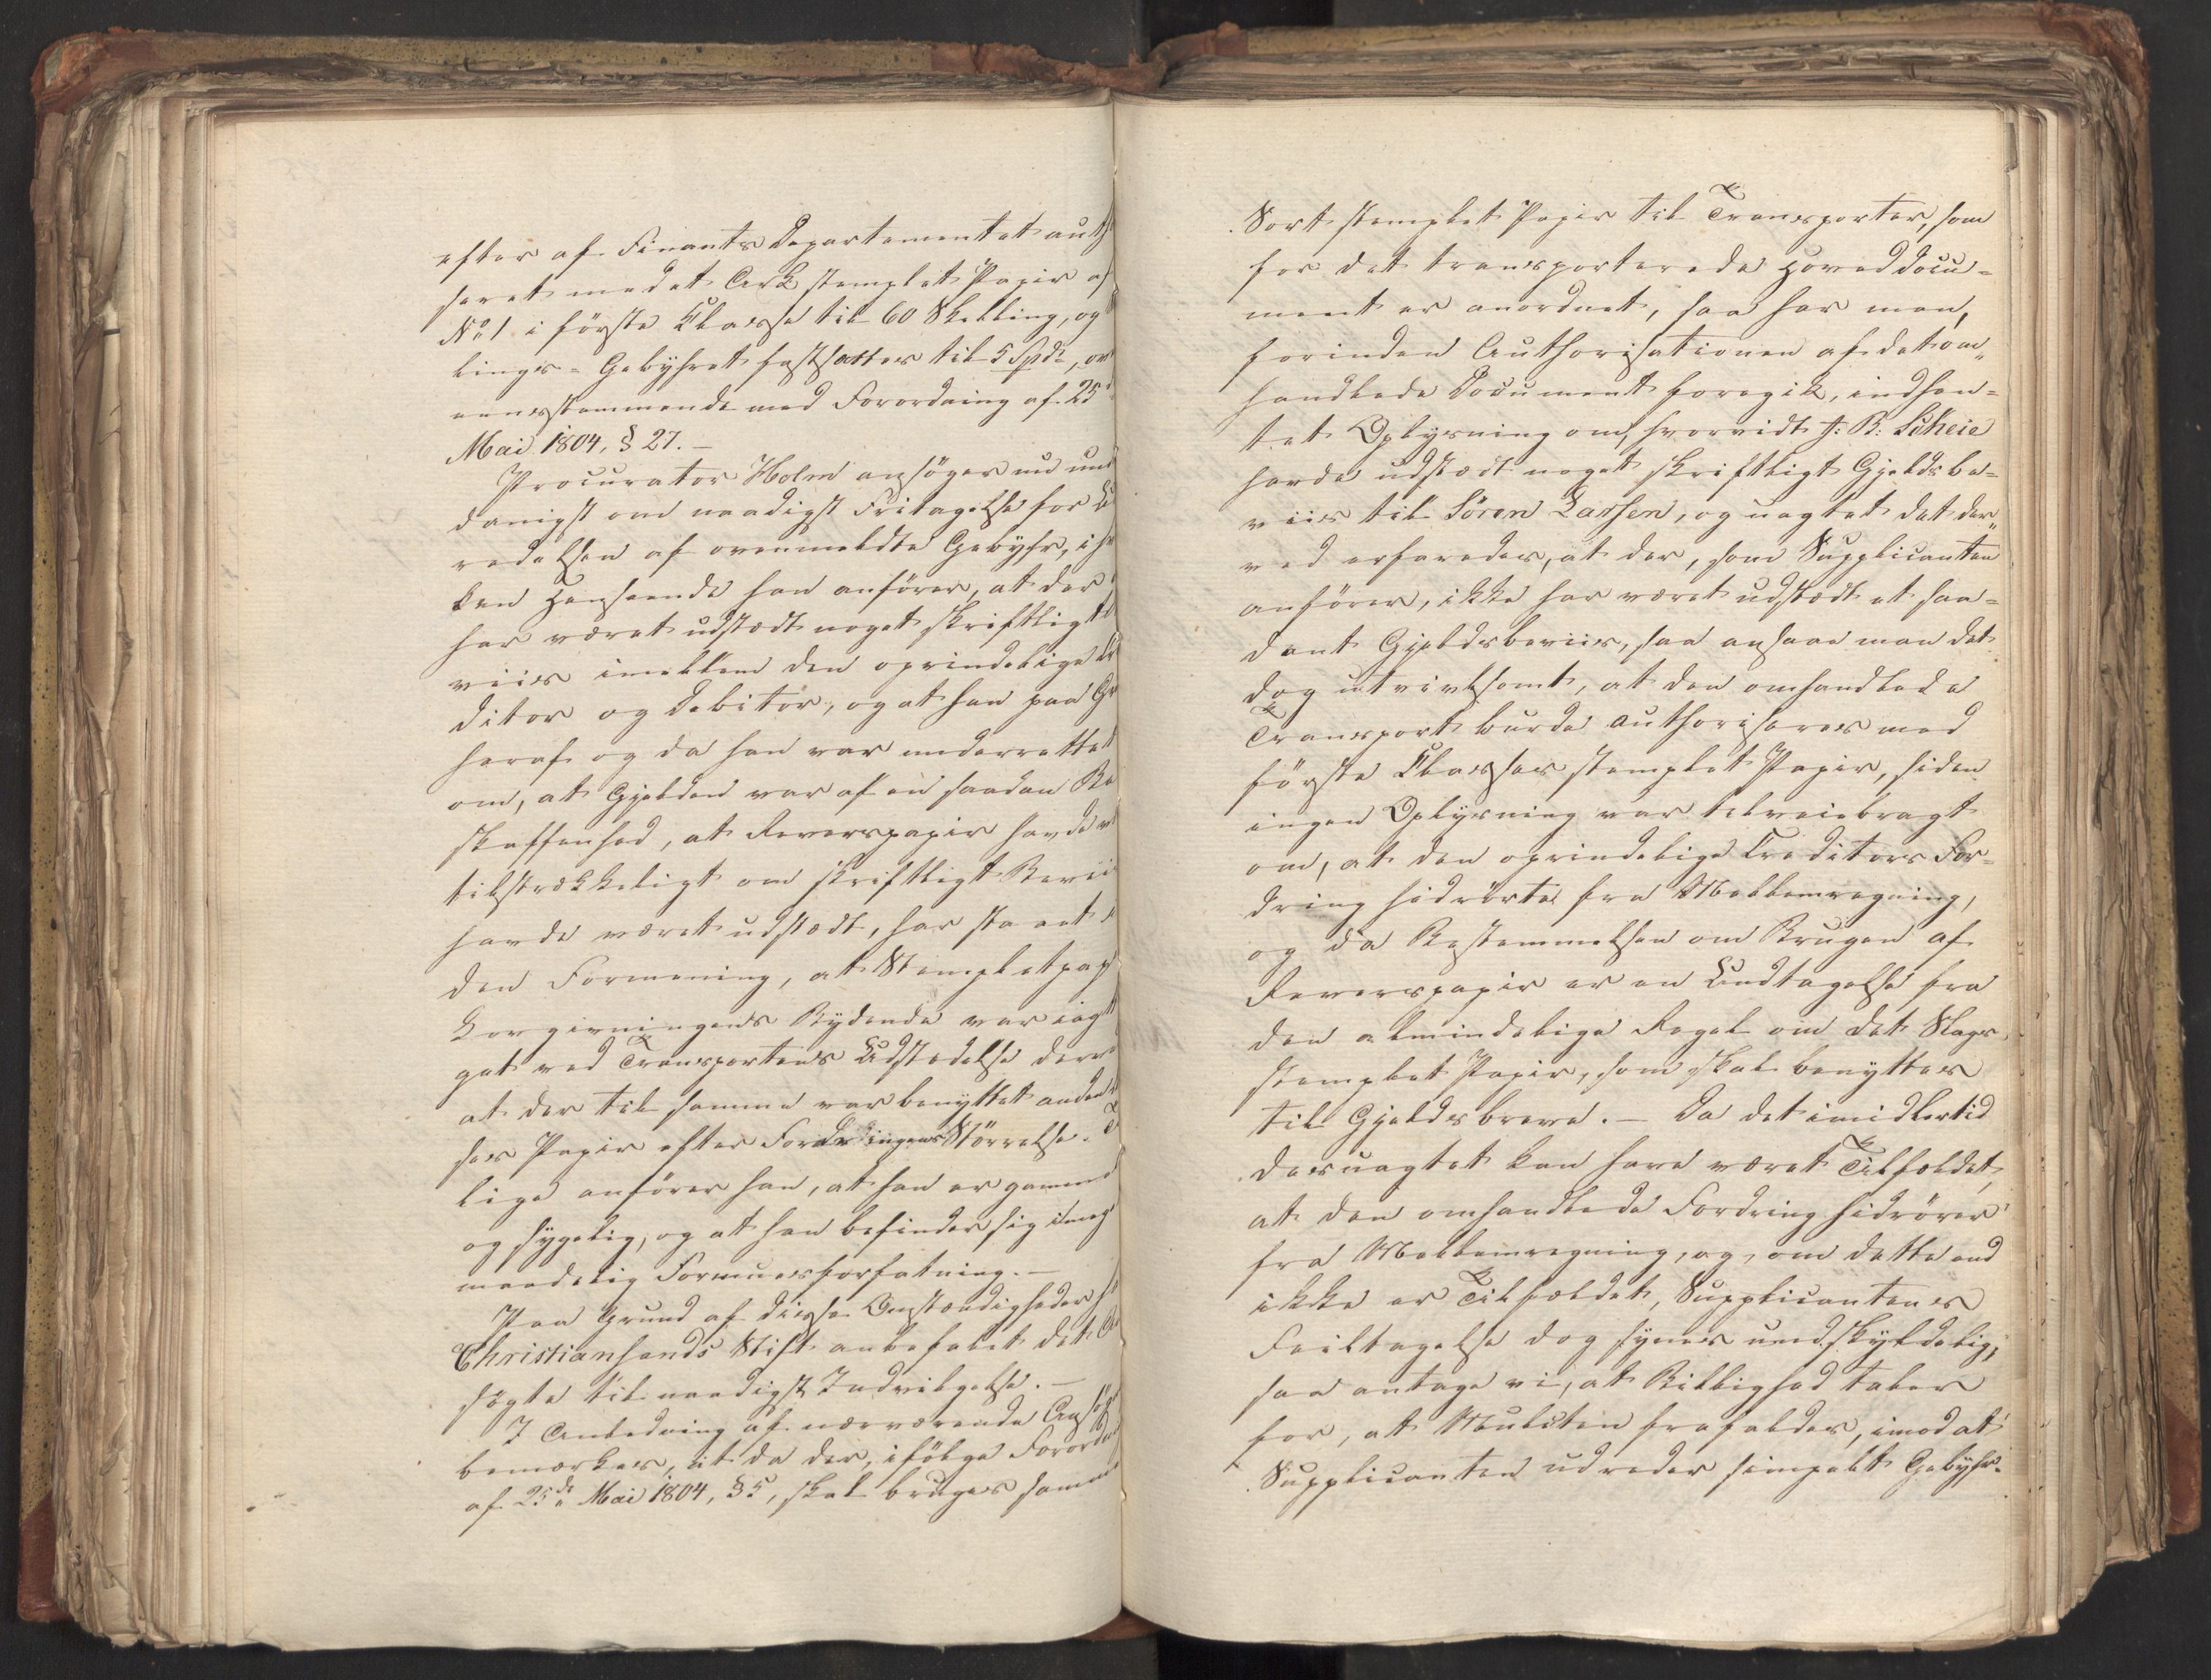 efter af Finants Departementet auth
seret med et Ark stemplet Papir af
No 1 i første Classe til 60 Skilling, og
lings-Gebyhret fastsattes til 5 Spdr, ov
eensstemmende med Forordning af 25
Mai 1804, § 27.—
Procurator Holm ansøger nu und
danigst om naadigst Fritagelse for U
redelsen af ovenmeldte Gebyhr, i h
ken Henseende han anfører, at der
har været udstædt noget skriftligt
viis imellem den oprindelige Cr
ditor og Debitor, og at han paa Gr
heraf og da han var underrettet
om, at Gjelden var af en saadan Be
skaffenhed, at Reverspapir havde v
tilstrækkeligt om skriftligt Bevii
havde været udstædt, har staaet i
den Formening, at Stempletpap
Lovgivningens Bydende var iagt
get ved Transportens Udstedelse derv
at der til samme var benyttet anden
ses Papir efter Fordringens Størrelse. T
lige anfører han, at han er gammel
og sygelig, og at han befinder sig i meg
maadelig Formuesforfatning.—
Paa Grund af disse Omstændigheder h
Christiansands Stift anbefalet det An
søgte til naadigst Indvilgelse.—
I Anledning af nærværende Ansøg
bemærkes, at da der, ifølge Forordn
af 25de Mai 1804, § 5, skal bruges samme
Sort stemplet Papir til Transporter, som
for det transporterede Hoveddocu=
ment er anordnet, saa har man,
forinden Authorisationen af det om„
handlede Document foregik, indhen=
tet Oplysning om, hvorvidt J: B: Scheie
havde udstædt noget skriftligt Gjeldsbe=
viis til Søren Lassen, og uagtet det der„
ved erfaredes, at der, som Supplicanten
anfører, ikke har været udstædt et saa=
dant Gjeldsbeviis, saa ansaae man det
dog utvivlsomt, at den omhandlede
Transport burde authoriseres med
første Classes stemplet Papir, siden
ingen Oplysning var tilveiebragt
om, at den oprindelige Creditors For=
dring hidrørte fra Mellemregning,
og da Bestemmelsen om Brugen af
Reverspapir er en Undtagelse fra
den almindelige Regel om det Slags
stemplet Papir, som skal benyttes
til Gjeldsbreve.— Da det imidlertid
desuagtet kan have været Tilfældet,
at den omhandlede Fordring hidrører
fra Mellemregning, og, om dette end
ikke er Tilfældet, Supplicantens
Feiltagelse dog synes undskyldelig,
saa antage vi, at Billighed taler
for, at Mulcten frafaldes, imod at
Supplicanten udreder simpelt Gebyhr.